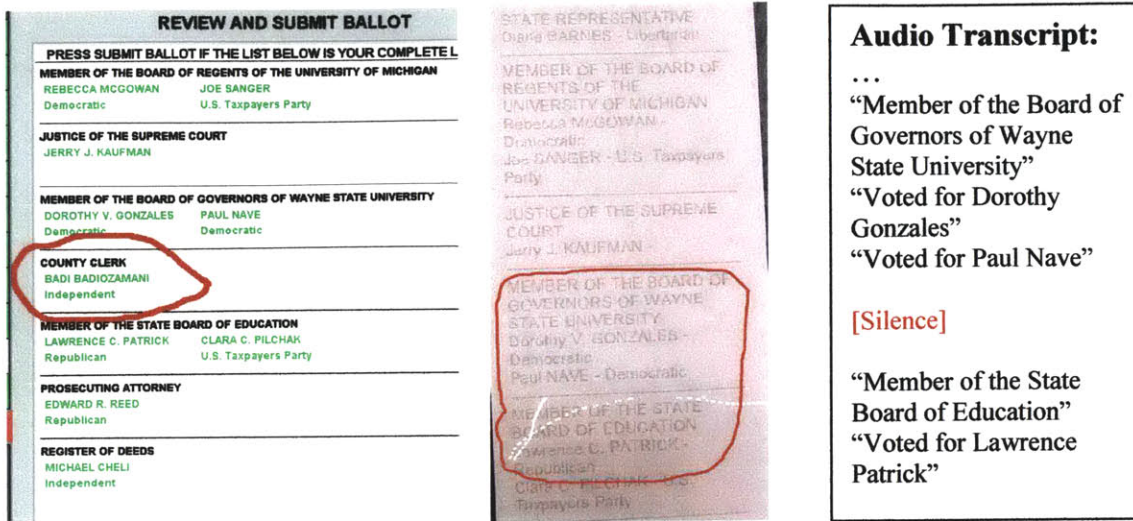 REVIEW AND SUBMIT BALLOT
PRESS SUBMIT BALLOT IF THE LIST BELOW IS YOUR COMPLETE L
MEMBER OF THE BOARD OF REGENTS OF THE UNIVERSITY OF MICHIGAN
REBECCA MCGOWAN JOE SANGER
Democratic U.S. Taxpayers Party
JUSTICE OF THE SUPREME COURT
JERRY J. KAUFMAN
MEMBER OF THE BOARD OF GOVERNORS OF WAYNE STATE UNIVERSITY
DOROTHY V. GONZALES PAUL NAVE
Democratic Democratic
COUNTY CLERK
BADI BADIOZAMANI
Independent
MEMBER OF THE STATE BOARD OF EDUCATION
LAWRENCE C. PATRICK CLARA C. PILCHAK
Republican U.S. Taxpayers Party
PROSECUTING ATTORNEY
EDWARD R. REED
Republican
REGISTER OF DEEDS
MICHAEL CHELI
Independent
STATE REPRESENTATIVE
Diana BARNES - Libertarian
MEMBER OF THE BOARD OF
REGENTS OF THE
UNIVERSITY OF MICHIGAN
Rebecca McGOWAN -
Democratic
Joe SANGER - U.S. Taxpayers
Party
JUSTICE OF THE SUPREME
COURT
Jerry J. KAUFMAN -
MEMBER OF THE BOARD OF
GOVERNORS OF WAYNE
STATE UNIVERSITY
Dorothy V. GONZALES -
Democratic
Paul NAVE - Democratic
MEMBER OF THE STATE
BOARD OF EDUCATION
Lawrence C. PATRICK -
Republican
Clara C. PILCHAK - U.S.
Taxpayers Party
Audio Transcript:
…
“Member of the Board of
Governors of Wayne
State University”
“Voted for Dorothy
Gonzales”
“Voted for Paul Nave”
[Silence]
“Member of the State
Board of Education”
“Voted for Lawrence
Patrick”